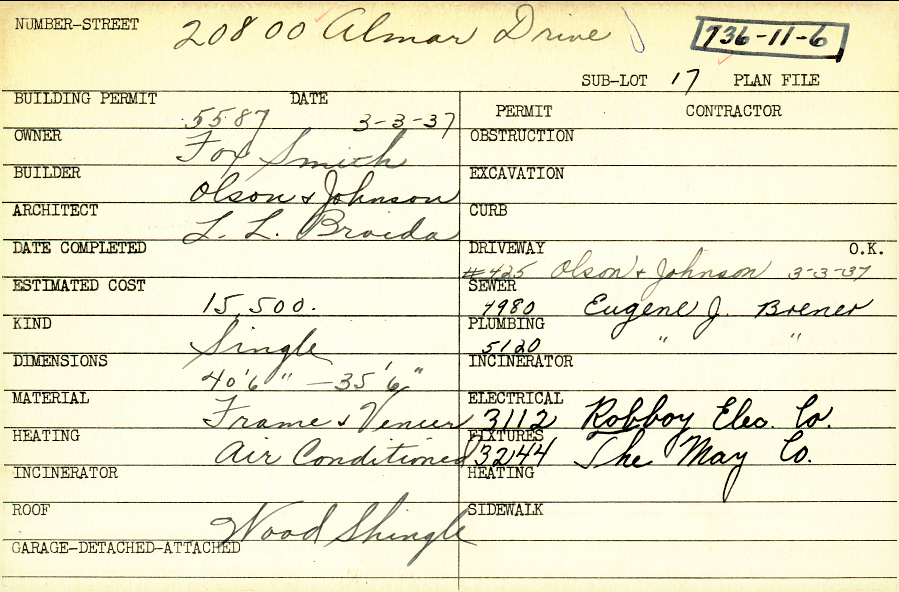 NUMBER-STREET 20800 Almar Drive 736-11-6
SUB-LOT 17 PLAN FILE
BUILDING PERMIT 5587 DATE 3-3-37
OWNER Fox Smith
BUILDER Olson & Johnson
ARCHITECT L. L. Broida
DATE COMPLETED
ESTIMATED COST 15,500.
KIND Single
DIMENSIONS 40'6" - 35'6"
MATERIAL Frame & Venier
HEATING Air Conditioned
INCINERATOR
ROOF Wood Shingle
GARAGE-DETACHED-ATTACHED
PERMIT CONTRACTOR
OBSTRUCTION
EXCAVATION
CURB
DRIVEWAY O.K.
#425 Olson & Johnson 3-3-37
SEWER
4980 Eugene J. Brener
PLUMBING
5120 " "
INCINERATOR
ELECTRICAL
3112 Robboy Elec. Co.
FIXTURES
3244 The May Co.
HEATING
SIDEWALK